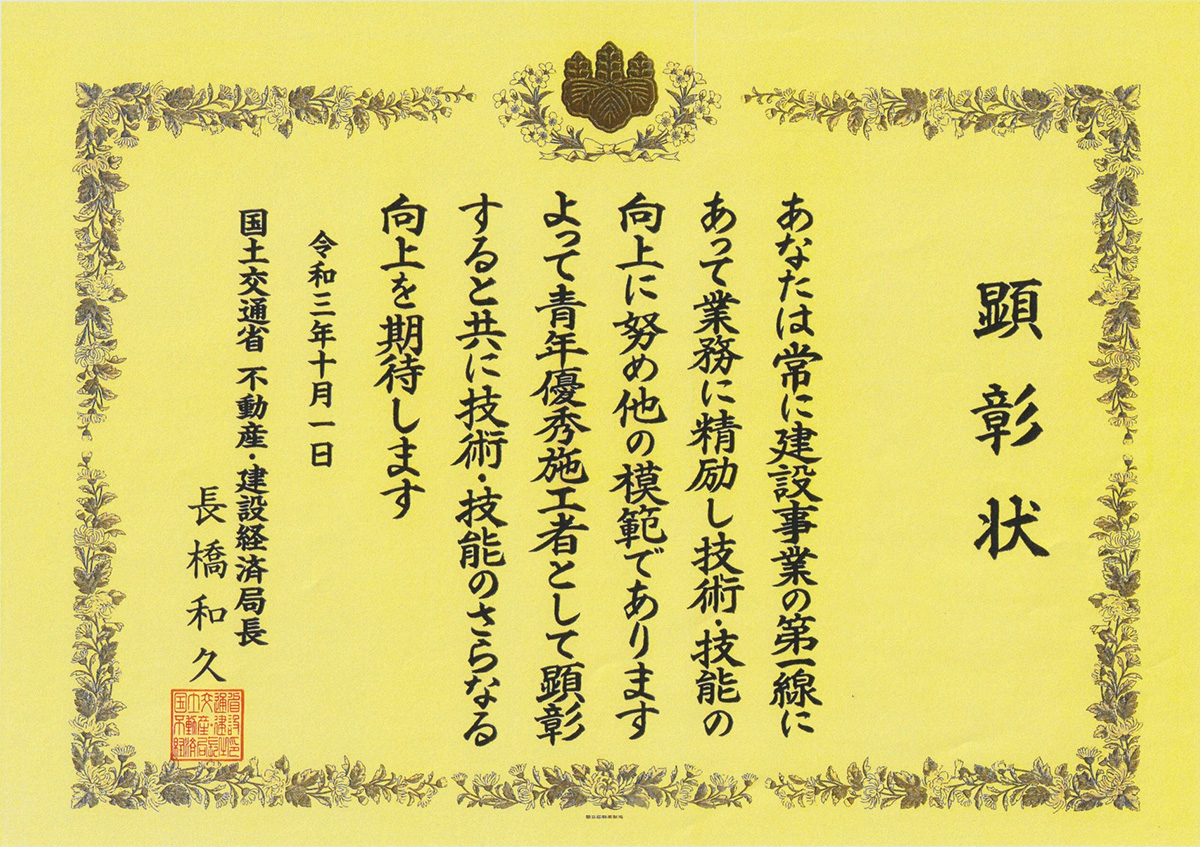 顕彰状
あなたは常に建設事業の第一線に
あって業務に精励し技術・技能の
向上に努め他の模範であります
よって青年優秀施工者として顕彰
すると共に技術・技能のさらなる
向上を期待します
令和三年十月一日
国土交通省 不動産・建設経済局長
長橋和久